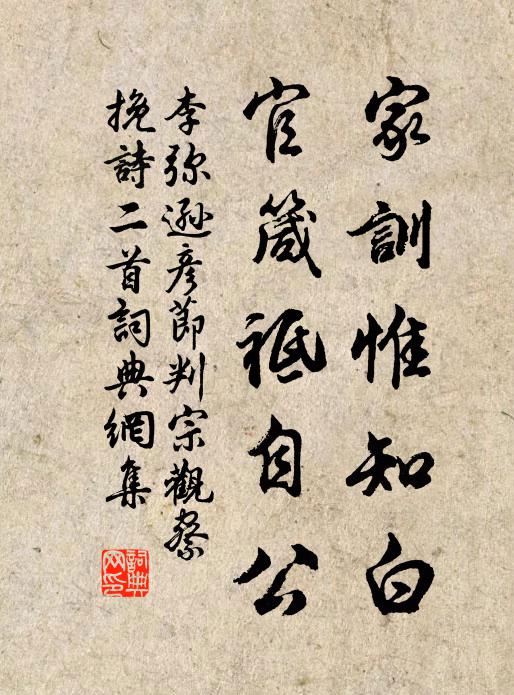 家訓惟知白
官箴祗自公
李弥遜彥節判宗觀察
挽詩二首詞典網集
詞典网印